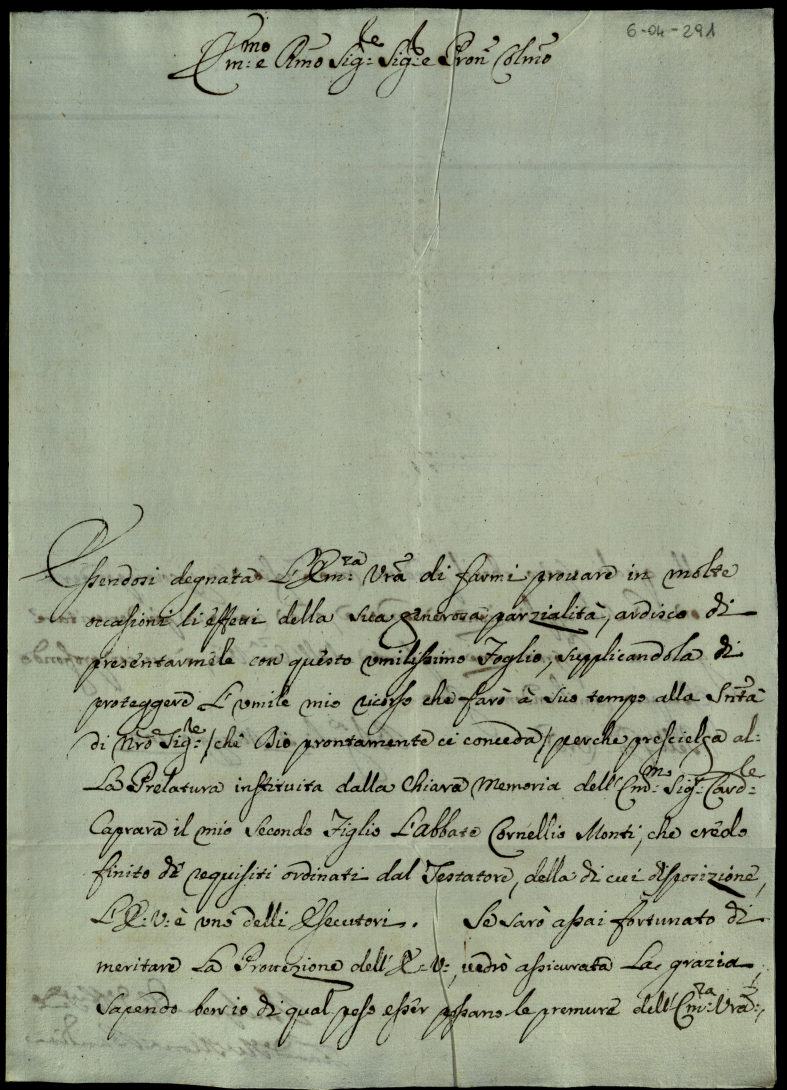 6-04-291
Em:mo e Rmo Sig:re Sig:re e Pron Colmo
Essendosi degnata L'Em:za Vra di farmi prouare in molte
occasioni li effetti della sua generosa parzialità, ardisco di
presentarmele con questo umilissimo Foglio, supplicandola di
proteggere L'umile mio ricorso che farò à suo tempo alla Sntà
di Nro Sig:re / che Dio prontamente ci conceda / perche prescielga al:
La Prelatura instituita dalla Chiara Memoria dell'Em:mo Sig:r Card:le
Caprara il mio Secondo Figlio L'abbate Cornellio Monti, che credo
finito de requisiti ordinati dal Testatore, della di cui disposizione,
L'E: V: è uno delli Esecutori. Se sarò assai fortunato di
meritare La Protezione dell'E: V:, uedrò assicurata La grazia,
Sapendo ben io di qual peso esser possano le premure dell'Em:za Vra:,